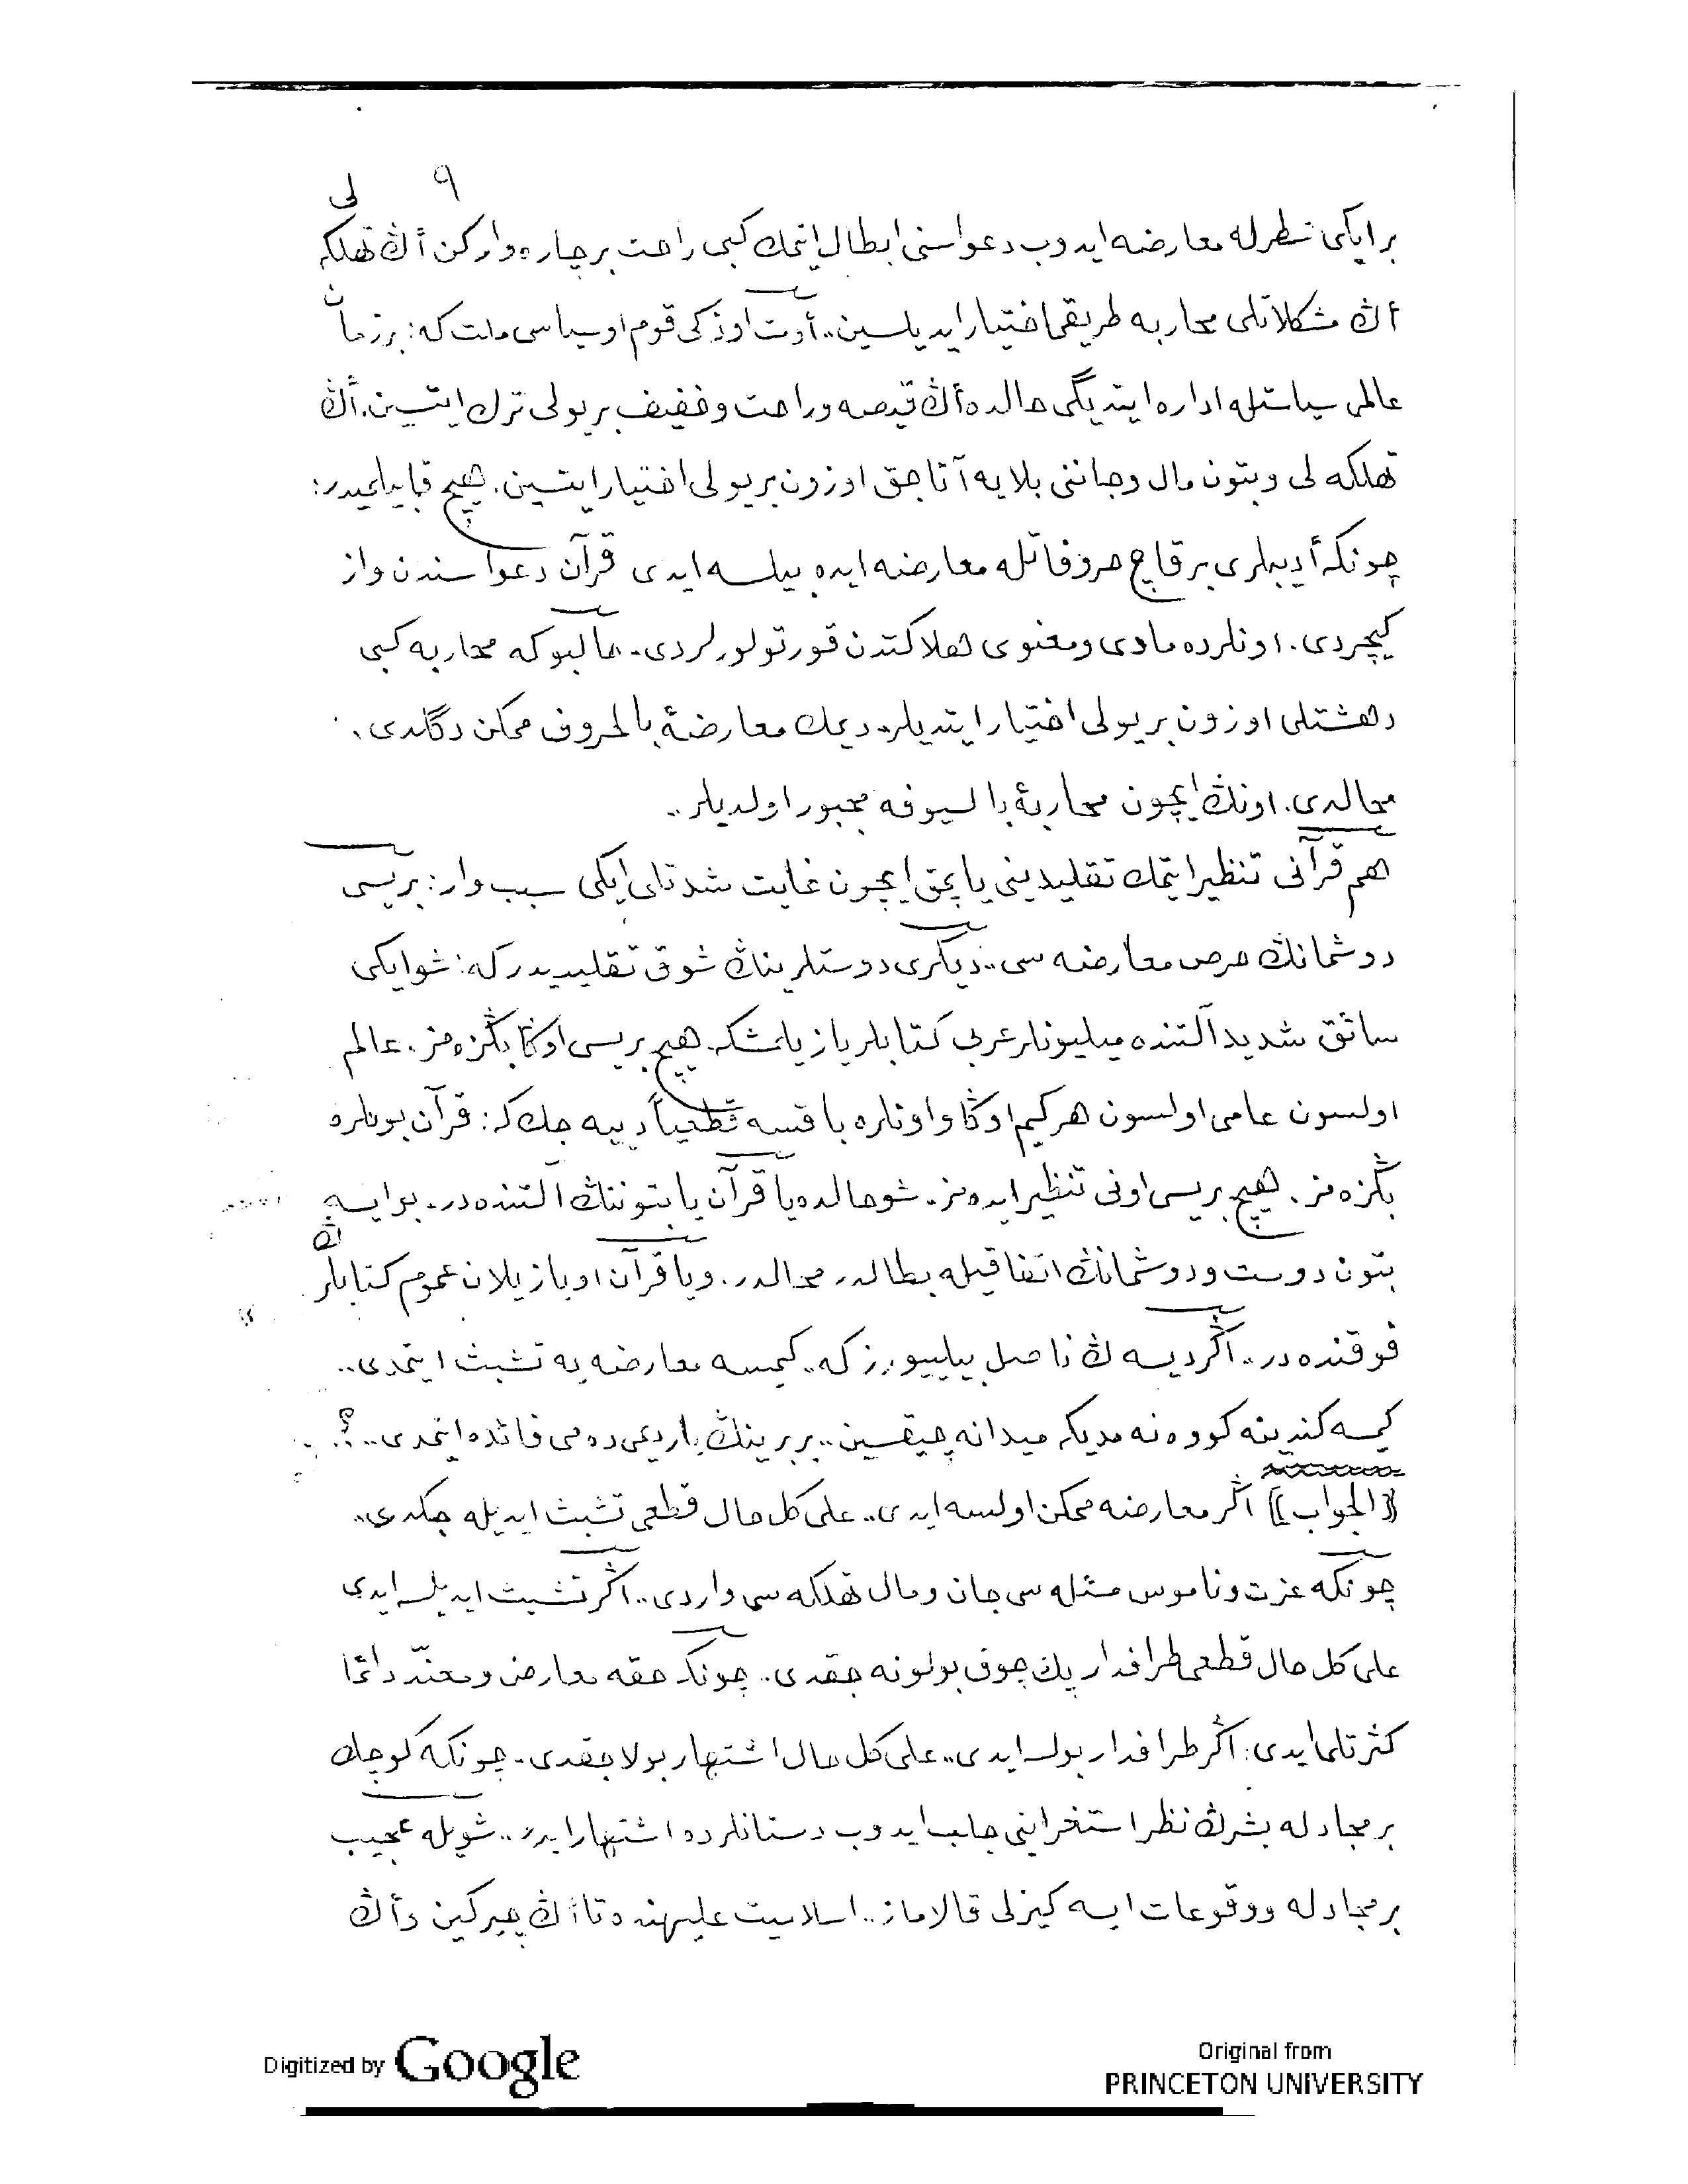 ٩
بر ایکی سطرله معارضه ایدوب دعواسنی ابطال ایتمك كبی راحت بر چاره وارکن أڭ تهلكه لی
أڭ مشكلاتلی محاربه طریقی اختیار ایدیلسین.. أوت او ذكی قوم او سیاسی ملت كه: بر زمان
عالمی سیاستله اداره ایتدیگی حالده أڭ قیصه و راحت و خفیف بر یولی ترك ایتسین. أڭ
تهلكه لی و بتون مال و جاننی بلایه آتاجق اوزون بر یولی اختیار ایتسین. هیچ قابلمیدر:
چونكه أدیبلری بر قاچ حروفاتله معارضه ایده بیلسه ایدی قرآن دعواسندن واز
كیچردی. اونلرده مادی و معنوی هلاكتدن قورتولورلردی. حالبوكه محاربه كبی
دهشتلی اوزون بر یولی اختیار ایتدیلر. دیمك معارضۀ بالحروف ممكن دگلدی.
محالدی. اونڭ ایچون محاربۀ بالسیوفه مجبور اولدیلر..
هم قرآنی تنظیر ایتمك تقلیدینی یاپمق ایچون غایت شدتلی ایكی سبب وار: بریسی
دوشمانڭ حرص معارضه سی.. دیگری دوستلرینڭ شوق تقلیدیدر كه: شو ایكی
سائق شدید آلتنده میلیونلر عربی كتابلر یازیلمشكه هیچ بریسی اوڭا بڭزه مز. عالم
اولسون عامی اولسون هر كیم اوڭا و اونلره باقسه قطعیاً دییه جك كه: قرآن بونلره
بڭزه مز. هیچ بریسی اونی تنظیر ایده مز. شو حالده یا قرآن یا بتوننڭ آلتنده در. بو ایسه
بتون دوست و دوشمانڭ اتفاقیله بطالدر محالدر. ویا قرآن او یازیلان عموم كتابلرڭ
فوقنده در.. اگر دیسه ڭ ناصل بیلییورز كه.. كیمسه معارضه یه تشبث ایتمدی..
كیمسه كندینه گووه نه مدیكه میدانه چیقسین.. بربرینڭ یاردیمی ده می فائده ایتمدی..؟.
((الجواب)) اگر معارضه ممكن اولسه ایدی.. علی كل حال قطعی تشبث ایدیله جكدی..
چونكه عزت و ناموس مسئله سی جان و مال تهلكه سی واردی.. اگر تشبث ایدیلسه ایدی
علی كل حال قطعی طرافدار پك چوق بولونه جقدی.. چونكه حقه معارض و معنّد دائما
كثرتلی ایدی: اگر طرافدار بولسه ایدی.. علی كل حال اشتهار بولاجقدی. چونكه كوچك
بر مجادله بشرڭ نظر استغرابنی جلب ایدوب دستانلرده اشتهار ایدر.. شویله عجیب
بر مجادله و وقوعات ایسه گیزلی قالاماز.. اسلامیت علیهنده تا أڭ چیركین و أڭ
Digitized by Google
Original from
PRINCETON UNIVERSITY